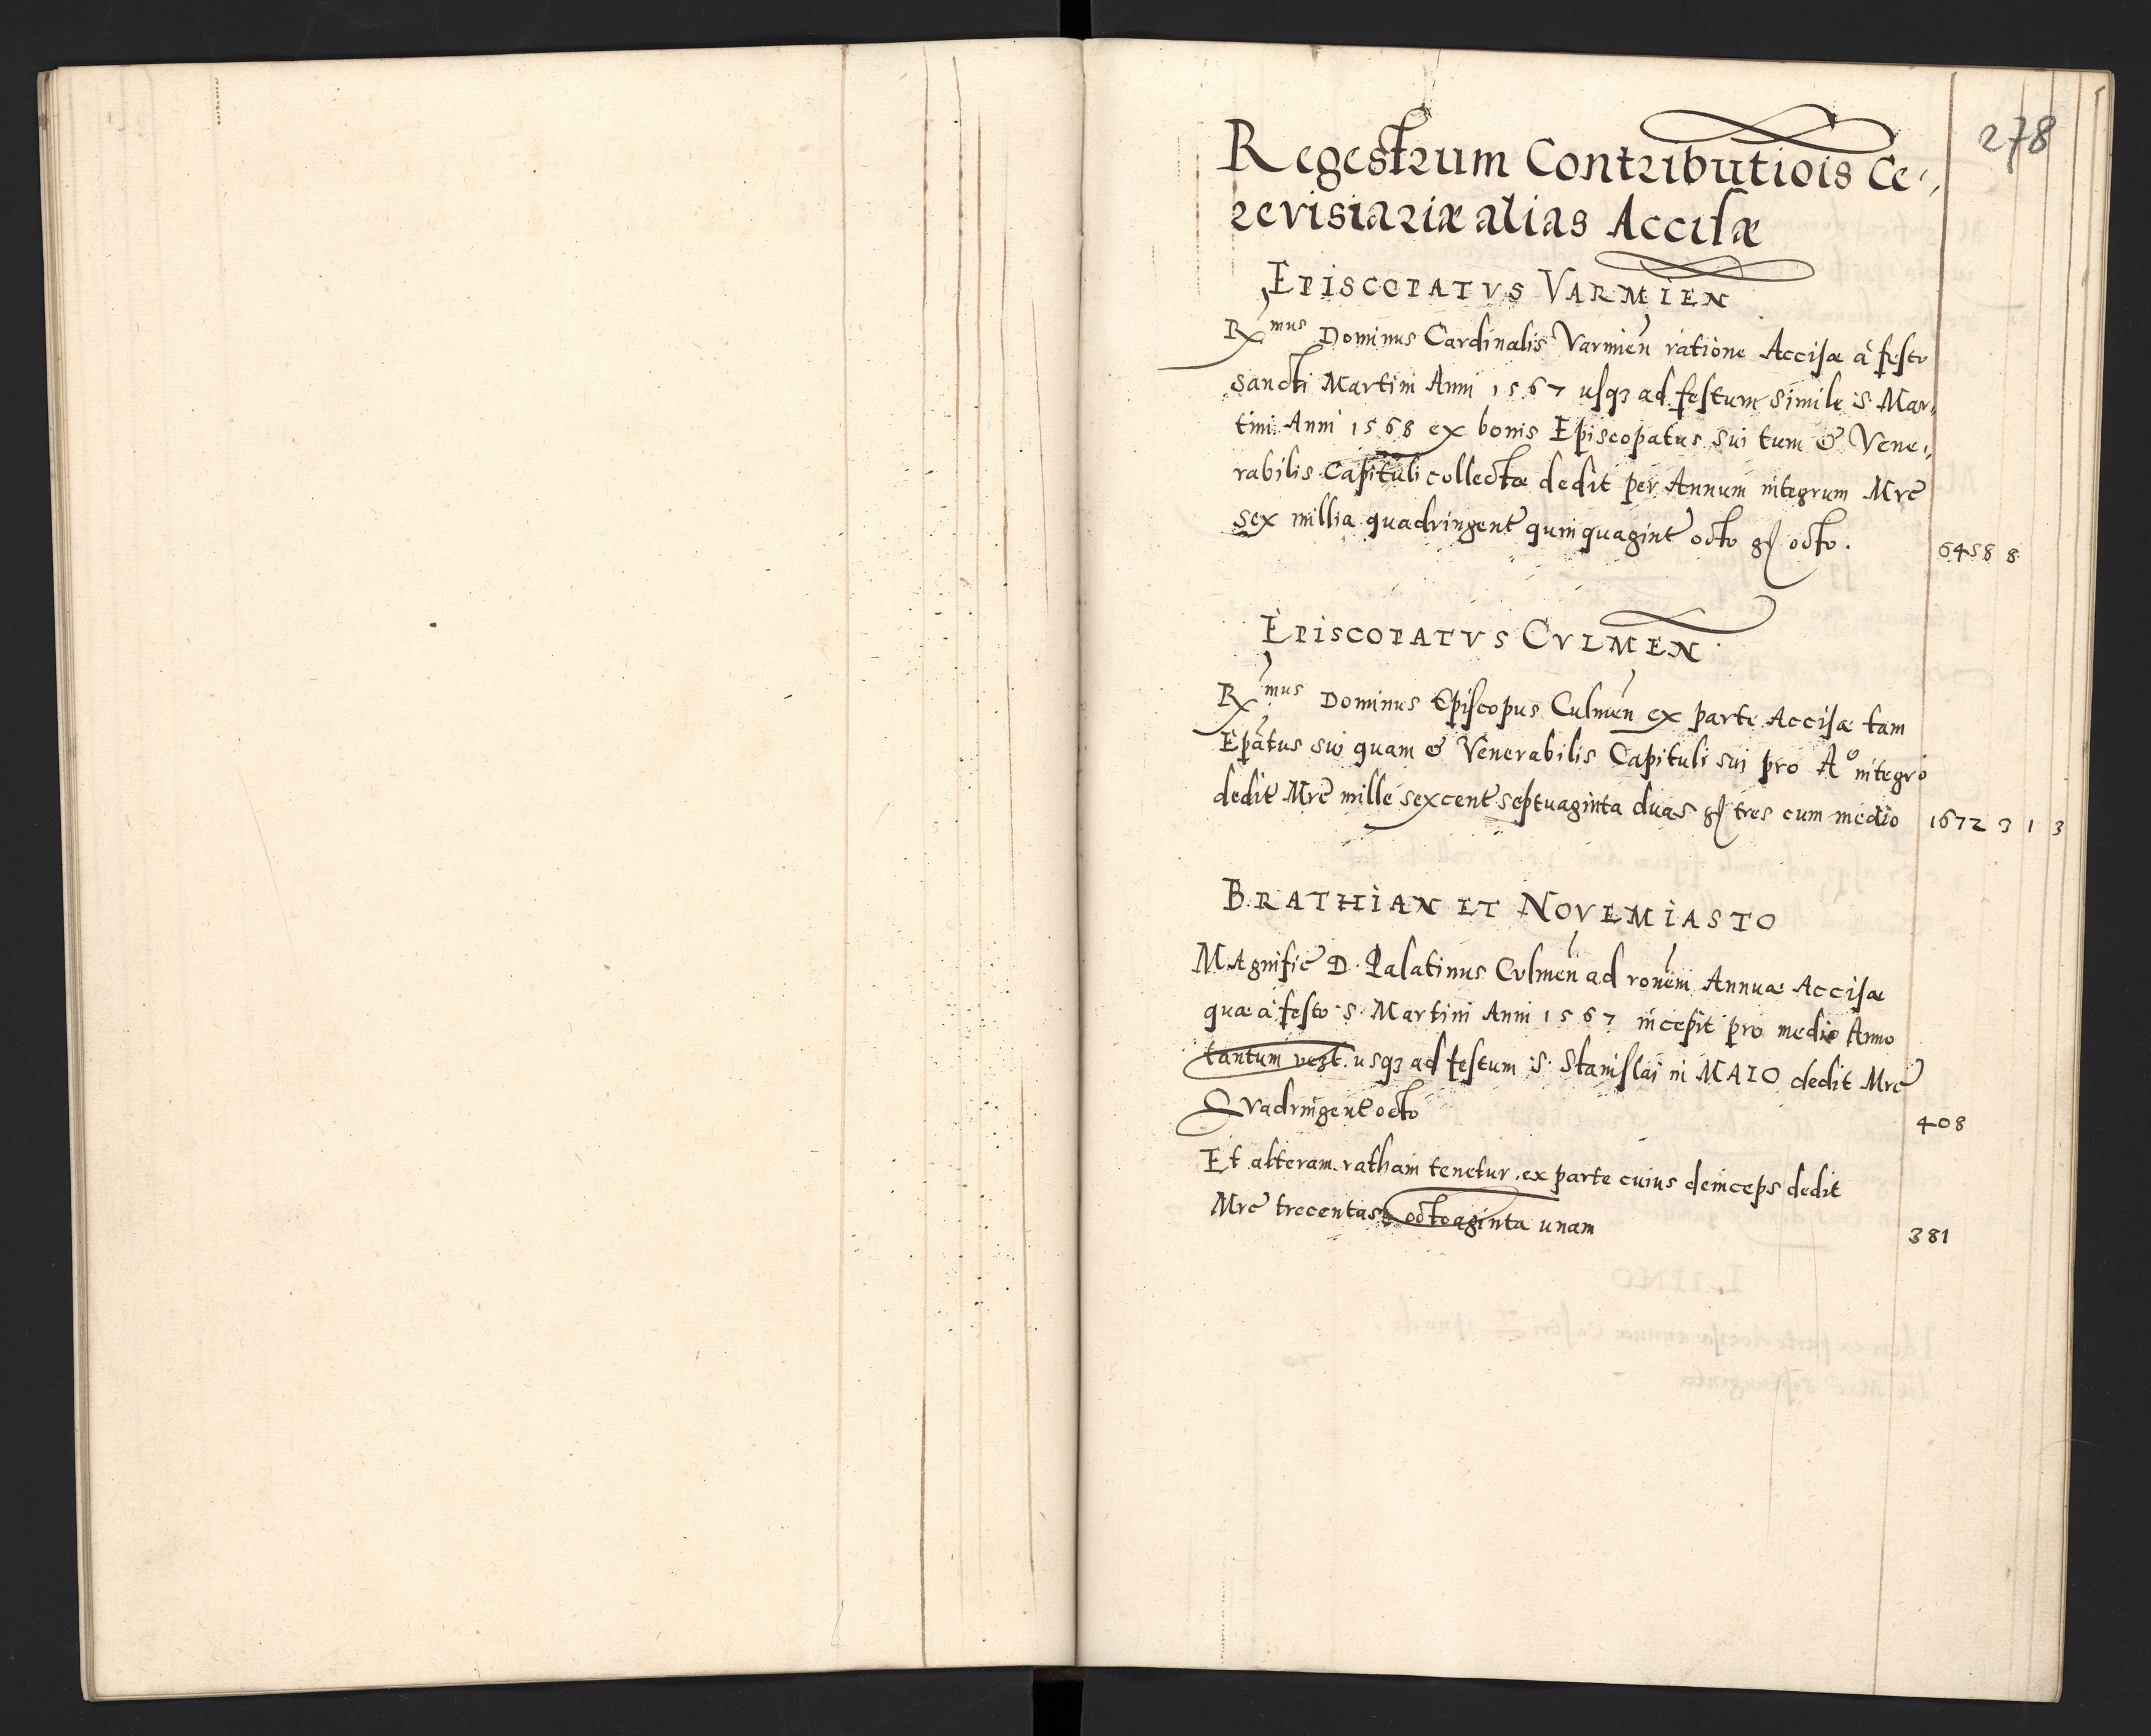 278
Regestrum Contributiois Ce-
revisiariæ alias Accisæ
EPISCOPATVS VARMIEN
Rx mus Dominus Cardinalis Varmien ratione Accisæ a festo
sancti Martini Anni 1567 usq3 ad festum simile S. Mar-
tini Anni 1568 ex bonis Episcopatus sui tum & Vene-
rabilis Capituli collectæ dedit per Annum integrum Mrc
sex millia quadringent quinquagint octo gſ octo. 6458 8
EPISCOPATVS CVLMEN
Rx mus Dominus Episcopus Culmen ex parte Accisæ tam
Epatus sui quam & Venerabilis Capituli sui pro A° integro
dedit Mrc mille sexcent septuaginta duas gſ tres cum medio 1672 3 1 3
BRATHIAN ET NOVEMIASTO
MAgnific D. Palatinus Cvlmen ad ronem Annuæ Accisæ
quæ a festo S. Martini Anni 1567 incepit pro medio Anno
tantum usq3 ad festum S. Stanislai in MAIO dedit Mrc
Qvadringent octo 408
Et alteram ratham tenetur ex parte cuius deinceps dedit
Mrc trecentas octoaginta unam 381